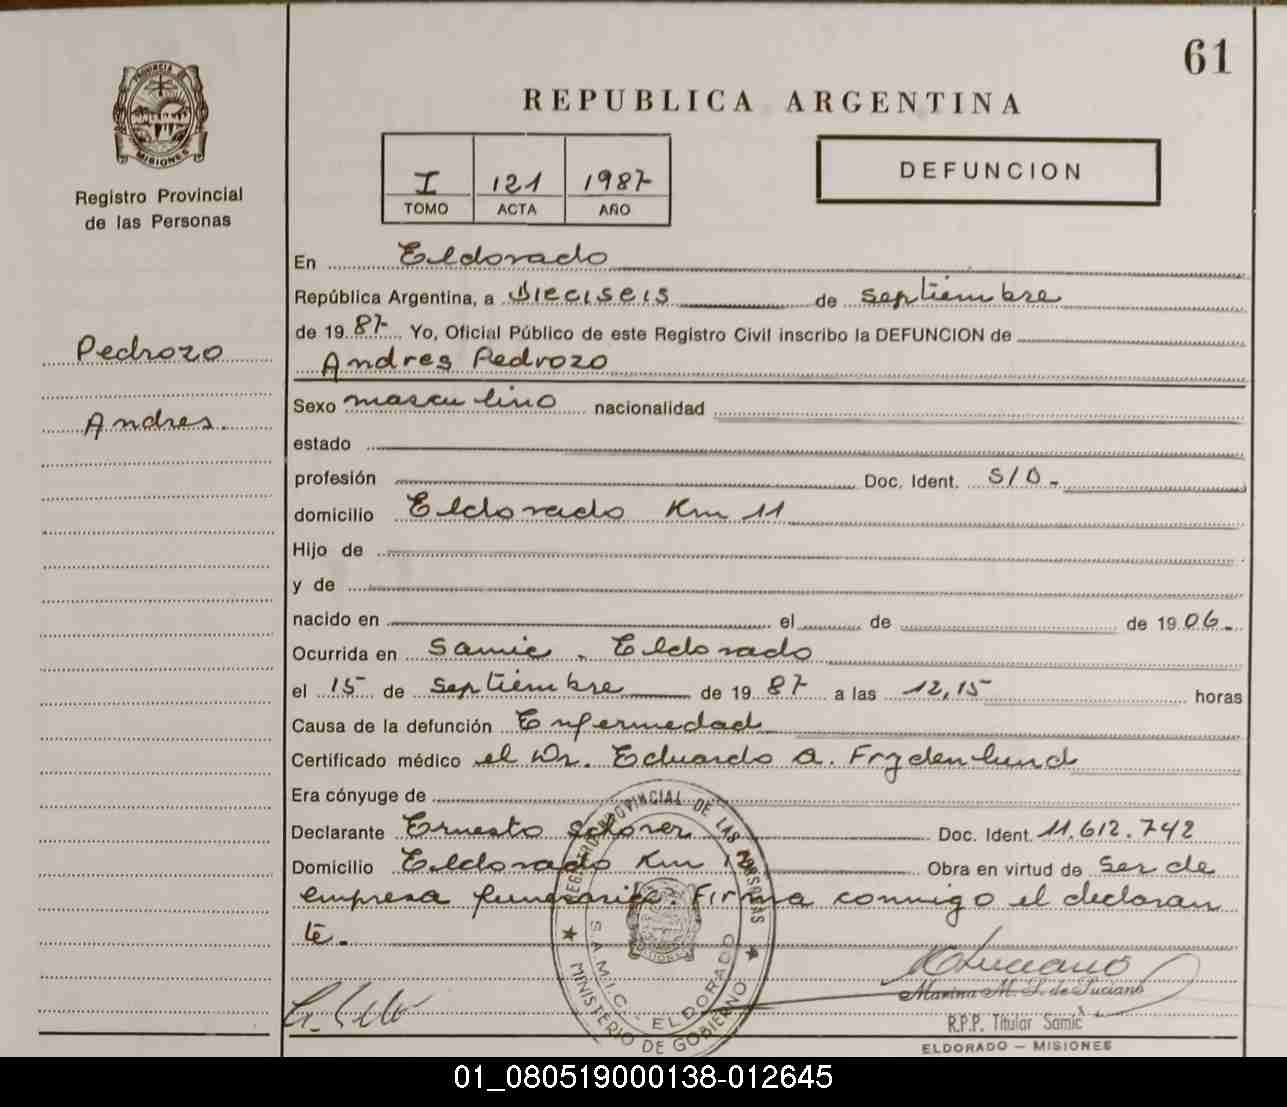 61
REPUBLICA ARGENTINA
PROVINCIA DE
MISIONES
Registro Provincial
de las Personas
I 121 1987
TOMO ACTA AÑO
DEFUNCION
Pedrozo
Andres.
En Eldorado
República Argentina, a Dieciseis de septiembre
de 1987 Yo, Oficial Público de este Registro Civil inscribo la DEFUNCION de
Andres Pedrozo
Sexo masculino nacionalidad
estado
profesión Doc. Ident. S/D.-
domicilio Eldorado Km 11
Hijo de
y de
nacido en el de de 1906.-
Ocurrida en Samic. Eldorado
el 15 de septiembre de 1987 a las 12,15 horas
Causa de la defunción Enfermedad
Certificado médico el Dr. Eduardo A. Frydenlund
Era cónyuge de
Declarante Ernesto Doc. Ident. 11.612.742
Domicilio Eldorado Km Obra en virtud de ser de
empresa funeraria. Firma conmigo el declaran
te.-
REGISTRO PROVINCIAL DE LAS PERSONAS
S.A.M.I.C. - ELDORADO
MINISTERIO DE GOBIERNO
Luciano
Marina M. de Luciano
R.P.P. Titular Samic
ELDORADO — MISIONES
01_080519000138-012645